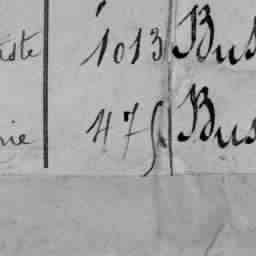 iste 1013 Bus
nie 475 Bus